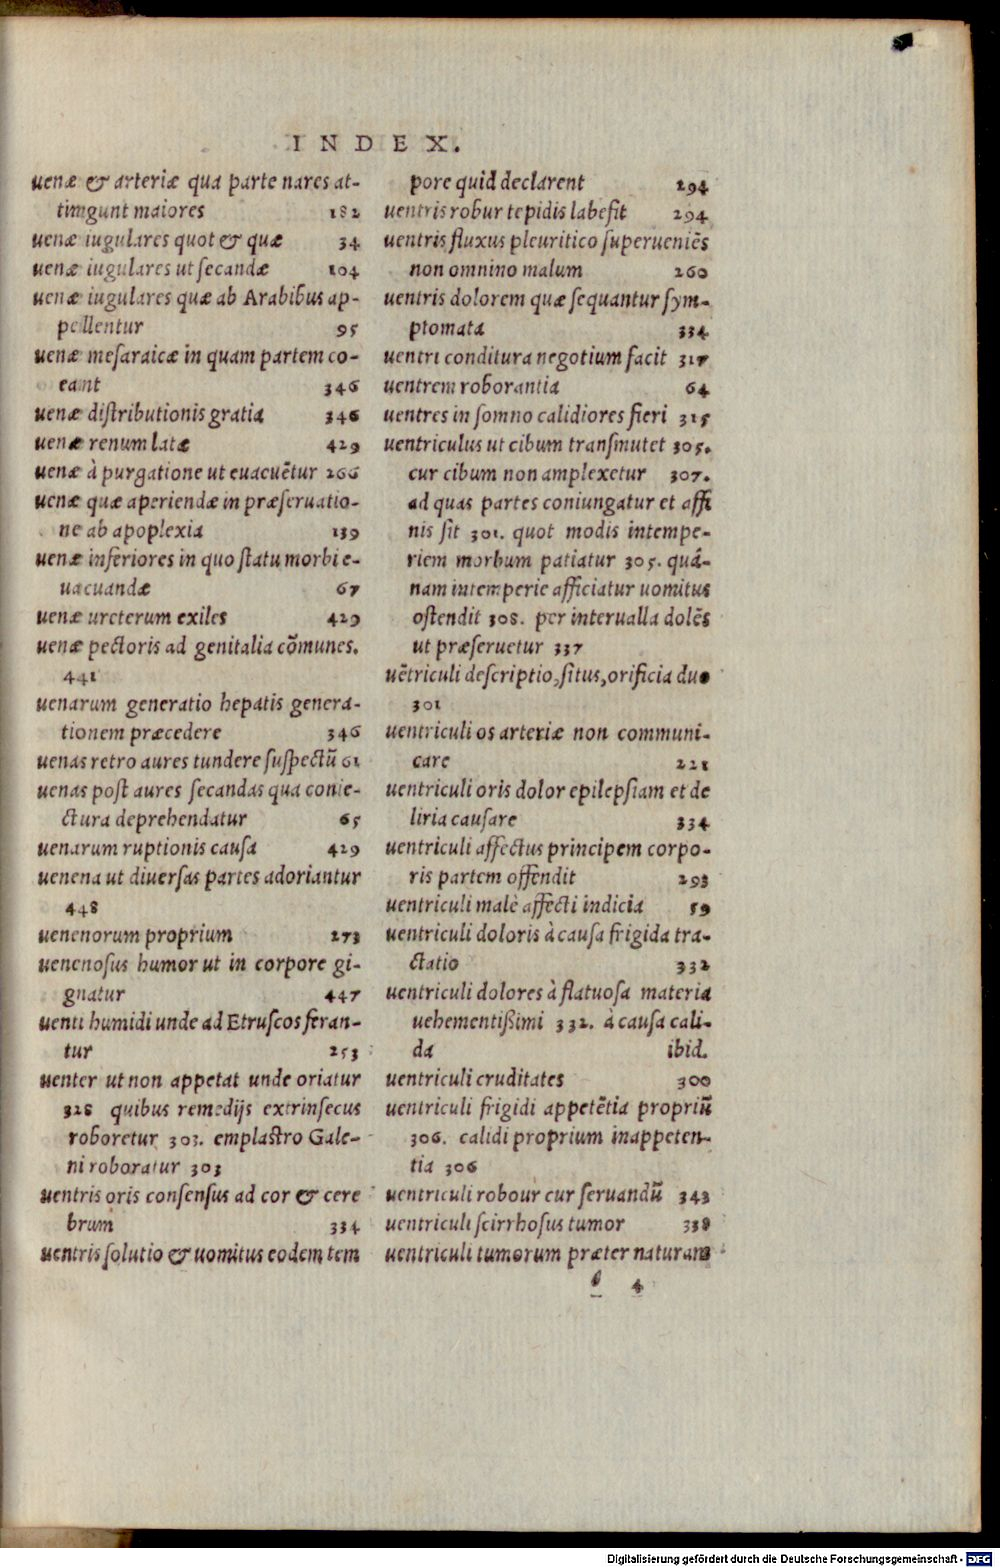 INDEX.
uenæ & arteriæ qua parte nares at-
tingunt maiores 182
uenæ iugulares quot & quæ 34
uenæ iugulares ut secandæ 104
uenæ iugulares quæ ab Arabibus ap-
pellentur 95
uenæ mesaraicæ in quam partem co-
eant 346
uenæ distributionis gratia 346
uenæ renum latæ 429
uenæ à purgatione ut euacuẽtur 266
uenæ quæ aperiendæ in præseruatio-
ne ab apoplexia 139
uenæ inferiores in quo statu morbi e-
uacuandæ 67
uenæ ureterum exiles 429
uenæ pectoris ad genitalia cõmunes.
441
uenarum generatio hepatis genera-
tionem præcedere 346
uenas retro aures tundere suspectũ 61
uenas post aures secandas qua conie-
ctura deprehendatur 65
uenarum ruptionis causa 429
uenena ut diuersas partes adoriantur
448
uenenorum proprium 273
uenenosus humor ut in corpore gi-
gnatur 447
uenti humidi unde ad Etruscos feran-
tur 253
uenter ut non appetat unde oriatur
328 quibus remedijs extrinsecus
roboretur 303. emplastro Gale-
ni roboratur 303
uentris oris consensus ad cor & cere
brum 334
uentris solutio & uomitus eodem tem
pore quid declarent 294
uentris robur tepidis labefit 294
uentris fluxus pleuritico superueniẽs
non omnino malum 260
uentris dolorem quæ sequantur sym-
ptomata 334
uentri conditura negotium facit 317
uentrem roborantia 64
uentres in somno calidiores fieri 315
uentriculus ut cibum transmutet 305.
cur cibum non amplexetur 307.
ad quas partes coniungatur et affi
nis sit 301. quot modis intempe-
riem morbum patiatur 305. quá-
nam intemperie afficiatur uomitus
ostendit 308. per interualla dolẽs
ut præseruetur 337
uẽtriculi descriptio, situs, orificia duo
301
uentriculi os arteriæ non communi-
care 221
uentriculi oris dolor epilepsiam et de
liria causare 334
uentriculi affectus principem corpo-
ris partem offendit 293
uentriculi malè affecti indicia 59
uentriculi doloris à causa frigida tra-
ctatio 332
uentriculi dolores à flatuosa materia
uehementißimi 332. à causa cali-
da ibid.
uentriculi cruditates 300
uentriculi frigidi appetẽtia propriũ
306. calidi proprium inappeten-
tia 306
uentriculi robour cur seruandũ 343
uentriculi scirrhosus tumor 338
uentriculi tumorum præter naturam
4
Digitalisierung gefördert durch die Deutsche Forschungsgemeinschaft - DFG